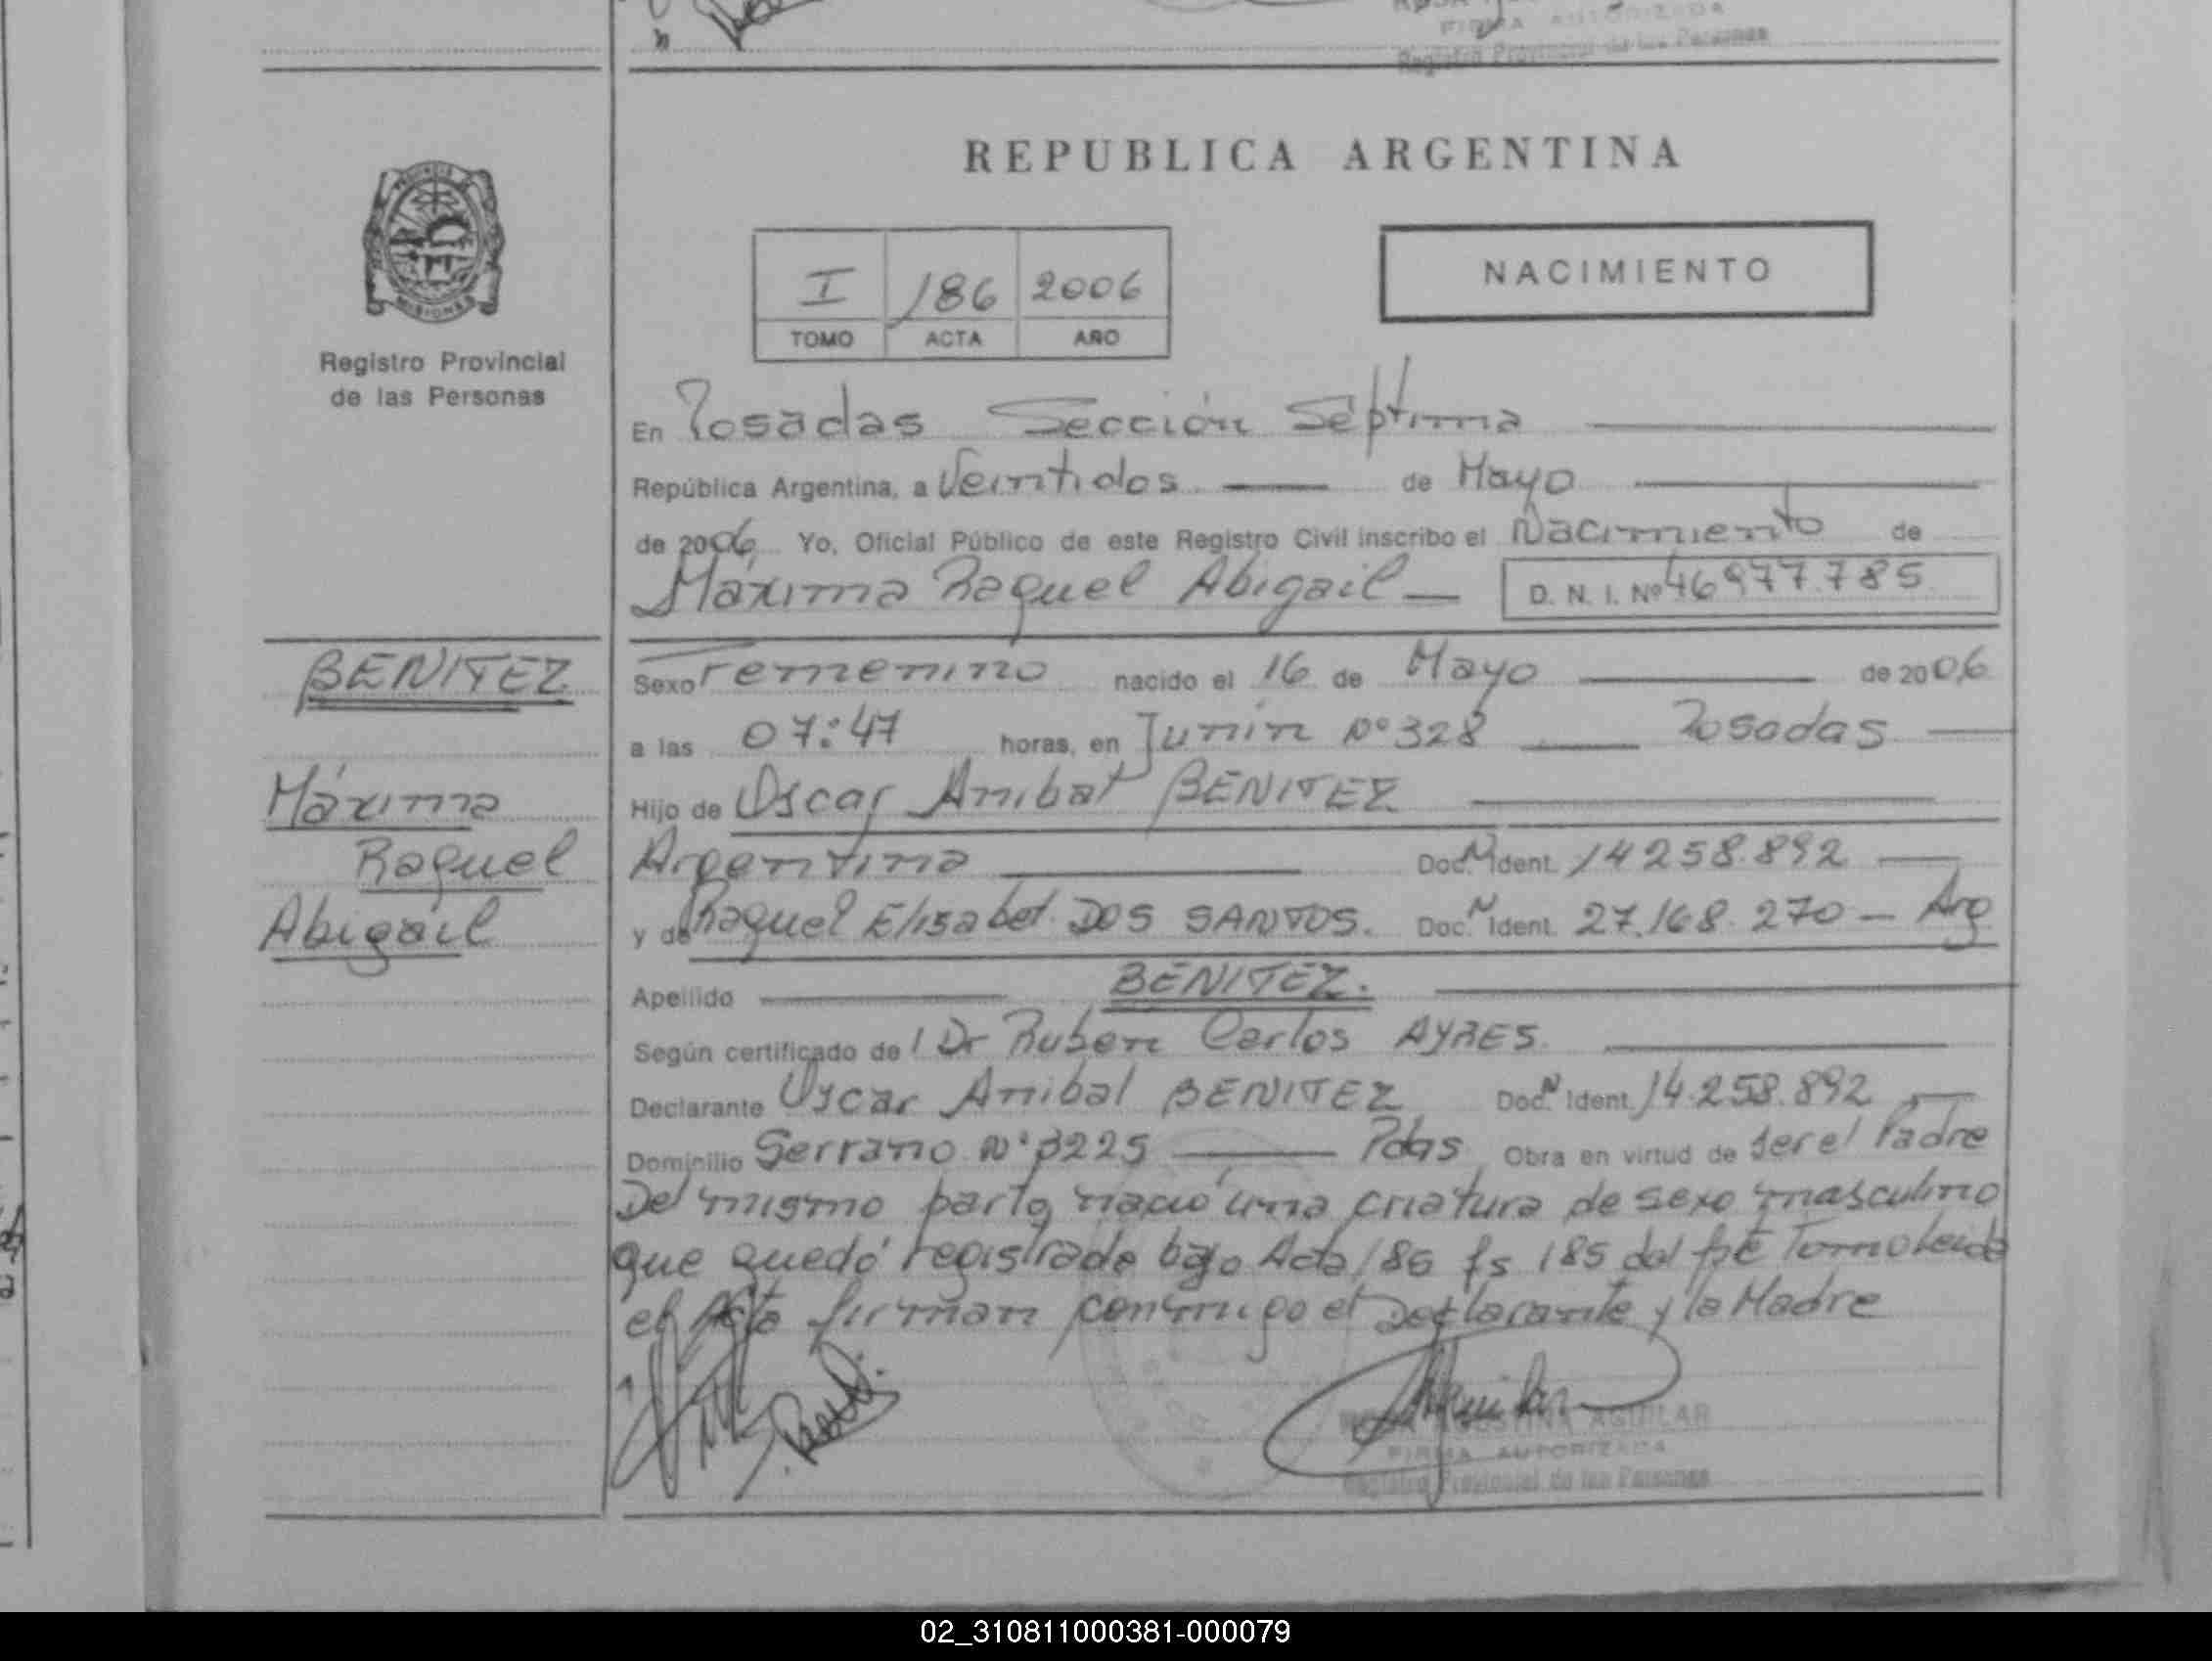 FIRMA AUTORIZADA
Registro Provincial de las Personas
REPUBLICA ARGENTINA
NACIMIENTO
I 186 2006
TOMO ACTA AÑO
Registro Provincial
de las Personas
En Posadas Sección Séptima
República Argentina, a Veintidos de Mayo
de 2006 Yo, Oficial Público de este Registro Civil inscribo el Nacimiento de
Máxima Raquel Abigail D. N. I. Nº 46977.785
BENITEZ
Máxima
Raquel
Abigail
Sexo Femenino nacido el 16 de Mayo de 2006
a las 07:47 horas, en Junín Nº 328 Posadas
Hijo de Oscar Anibal BENITEZ
Argentina Doc. N Ident. 14258.892
y de Raquel Elisabet DOS SANTOS. Doc. N Ident. 27.168.270 - Arg
Apellido BENITEZ.
Según certificado de l Dr Ruben Carlos AYRES
Declarante Oscar Anibal BENITEZ Doc. N Ident. 14.258.892
Domicilio Serrano Nº 3225 Pdas Obra en virtud de ser el Padre
Del mismo parto, nació una criatura de sexo masculino
que quedó registrado bajo Acta 186 fs 185 del Tomo Leida
el Acta firman conmigo el Declarante y la Madre
ROSA AGUSTINA AGUILAR
FIRMA AUTORIZADA
Registro Provincial de las Personas
02_310811000381-000079